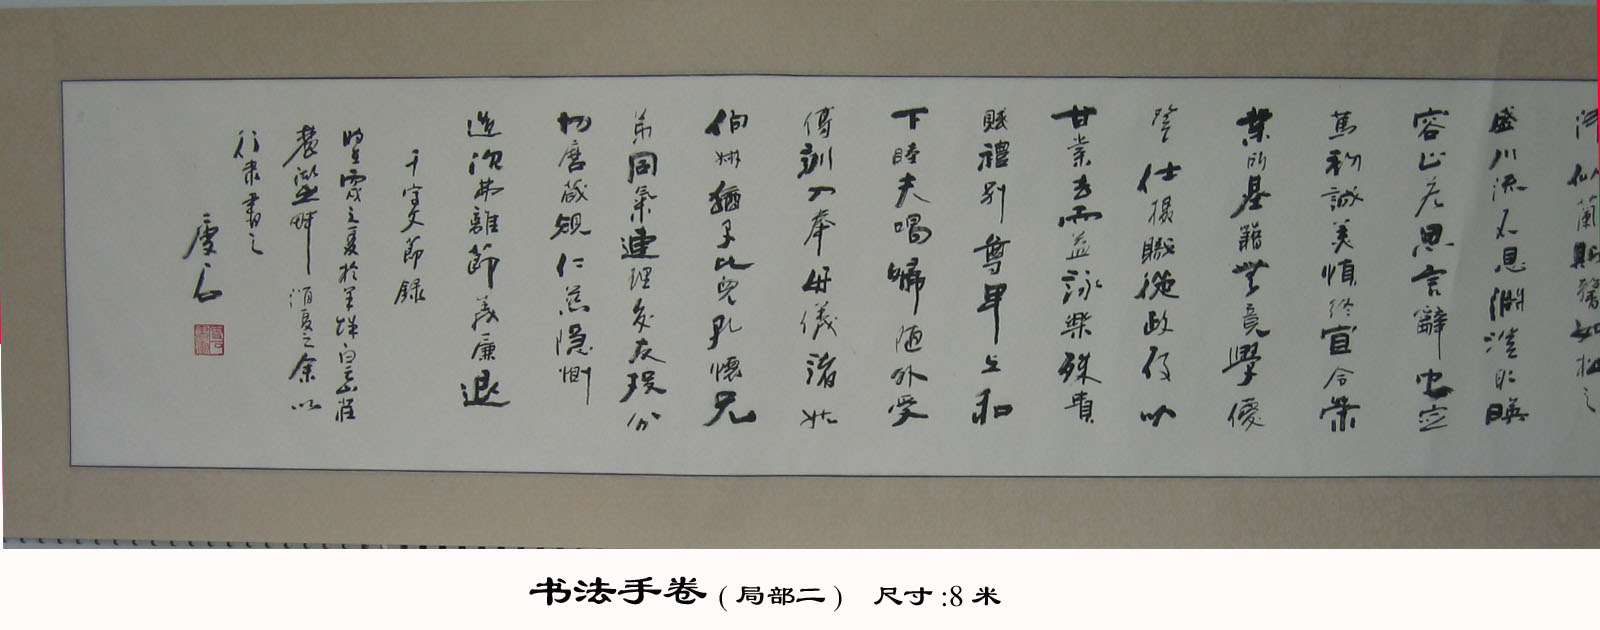 似蘭斯馨如松之
盛川流不息淵澄取暎
容止若思言辭安定
篤初誠美慎終宜令榮
業所基籍無竟學優
登仕攝職從政存以
甘棠去而益詠樂殊貴
賤禮別尊卑上和
下睦夫唱婦隨外受
傅訓入奉母儀諸姑
伯叔猶子比兒孔懷兄
弟同氣連理交友投分
切磨箴規仁慈隐惻
造次弗離節義廉退
千字文節録
之夏於羊城白云山莊
麓湖畔消夏之余以
行隶書之
书法手卷(局部二) 尺寸:8米